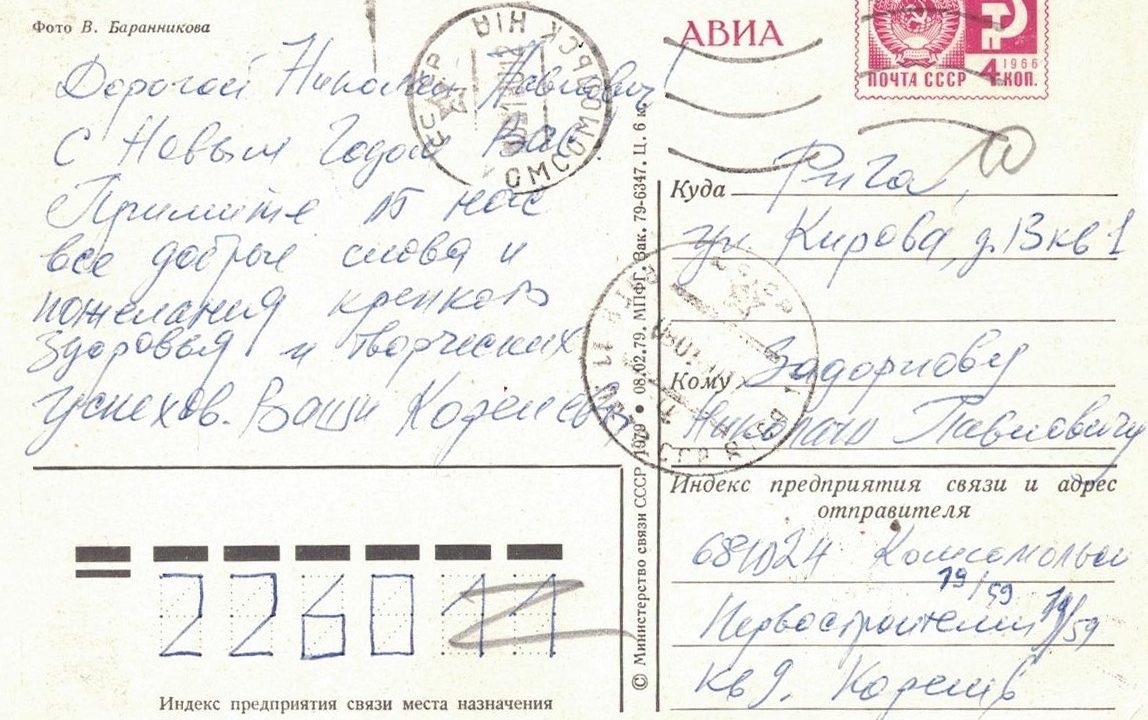 Фото В. Баранникова
Дорогой Николай Павлович
С Новым Годом Вас
Примите от нас
все добрые слова и
пожелания крепкого
здоровья и творческих
успехов. Ваши
226011
Индекс предприятия связи места назначения
© Министерство связи СССР 1979 • 08.02.79. МПФГ. Зак. 79-6347. Ц. 6 к.
АВИА
1966
ПОЧТА СССР 4 КОП.
Куда Рига,
ул Кирова, д. 13 кв 1
Кому Задорнову
Николаю Павловичу
Индекс предприятия связи и адрес
отправителя
681024 Комсомольск
19/59
Первостроителей 19/59
кв 9.